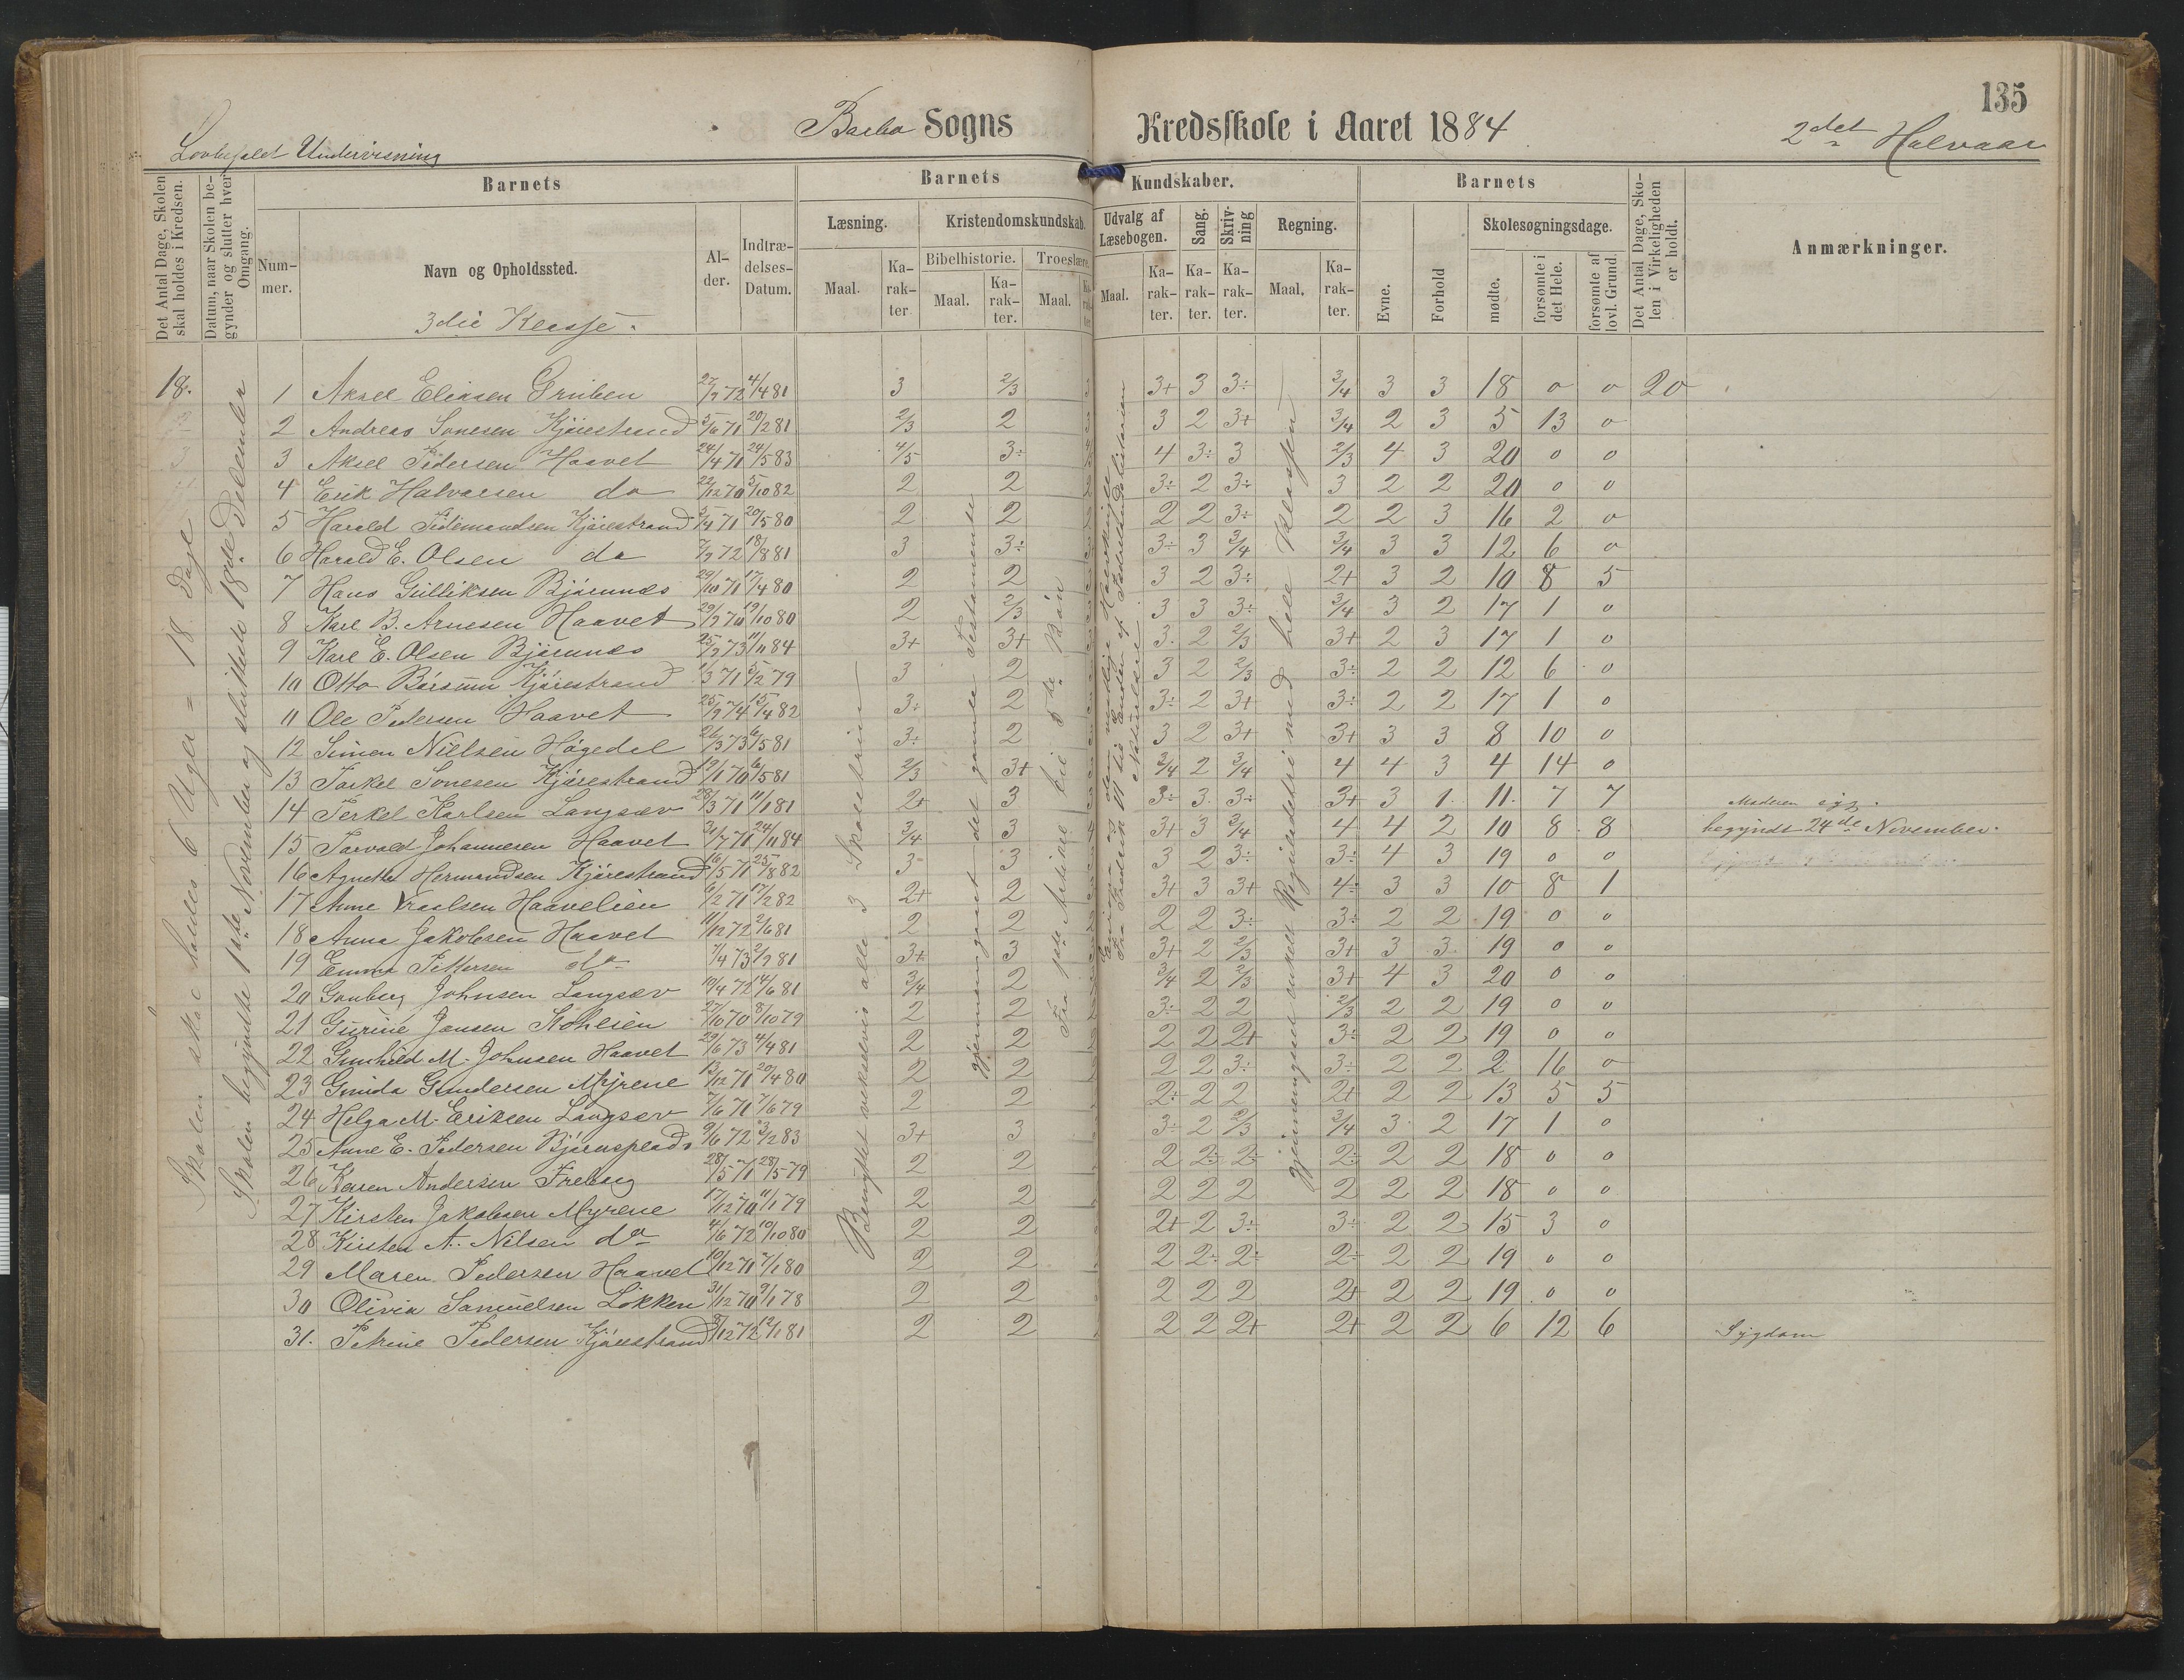 135
Barbo Sogns Kredsskole i Aaret 1884 2det Halvaar
Lovbefalet Undervisning
Det Antal Dage, Skolen skal holdes i Kredsen.
Datum, naar Skolen begynder og slutter hver Omgang.
Barnets
Nummer.
Navn og Opholdssted.
3die Klasse.
Alder.
Indtrædelses-Datum.
Barnets Kundskaber.
Læsning.
Maal.
Karakter
Kristendomskundskab.
Bibelhistorie.
Maal.
Karakter.
Troeslære.
Maal.
Udvalg af Læsebogen.
Maal.
Karakter.
Sang.
Karakter.
Skrivning
Karakter.
Regning.
Maal.
Karakter.
Barnets
Evne.
Forhold
Skolesøgningsdage.
mødte.
forsømte i det Hele.
forsømte af lovl. Grund.
Det Antal Dage, Skolen i Virkeligheden er holdt.
Anmærkninger.
18.
Skolen skal holdes 6 Uger = 18 Dage
Skolen begyndte 1ste November og sluttede 18de December
Benyttet vekselvis alle 3 Skoletrin
gjennemgaaet det gamle Testamente
Fra 1ste Artikel til 5te Bøn
gjennemgaaet enkelt Reguladetri med hele Klassen
1 Aksel Eliasen Gruben 27/9 72 4/4 81 3 2/3 3+ 3 3÷ 3/4 3 3 18 0 0 20
2 Andreas Tonesen Kjørestrand 5/6 71 20/2 81 2/3 2 3 2 3+ 3/4 2 3 5 13 0
3 Aksel Pedersen Haavet 24/4 71 24/5 83 4/5 3÷ 4 3÷ 3 2/3 4 3 20 0 0
4 Erik Halvorsen do 22/12 70 5/10 82 2 2 3÷ 2 3÷ 3 2 2 20 0 0
5 Harald Tidemandsen Kjørestrand 5/4 71 20/5 80 2 2 2 2 3÷ 2 2 3 16 2 0
6 Harald E. Olsen do 7/9 72 18/8 81 3 3÷ 3÷ 3 3/4 3/4 3 3 12 6 0
7 Hans Gulliksen Bjørnnes 29/10 71 17/4 80 2 2 3 2 3÷ 2+ 3 2 10 8 5
8 Karl B. Arnesen Haavet 29/9 70 19/10 80 2 2/3 3 3 3÷ 3/4 3 2 17 1 0
9 Karl E. Olsen Bjørnnes 25/9 73 11/11 84 3+ 3+ 3. 2 2/3 3+ 2 3 17 1 0
10 Otto Børsum Kjørestrand 1/3 71 5/2 79 3 2 3 2 2/3 3÷ 2 2 12 6 0
11 Ole Pedersen Haavet 25/9 74 15/4 82 3÷ 2 3÷ 2 3+ 3÷ 2 2 17 1 0
12 Simen Nielsen Høgedal 26/3 73 6/5 81 3÷ 2 3 2 3+ 3+ 3 3 8 10 0
13 Torkel Tonesen Kjørestrand 19/1 70 6/5 81 2/3 3+ 3/4 2 3/4 4 4 3 4 14 0
14 Terkel Karlsen Langsæv 28/3 71 11/1 81 2+ 3 3÷ 3. 3÷ 3+ 3 1. 11. 7 7 Moderen syg.
15 Torvald Johannesen Haavet 31/7 71 24/11 84 3/4 3 3+ 3 3/4 4 4 2 10 8 8 begyndt 24de November.
16 Agnethe Hermandsen Kjørestrand 16/5 71 25/8 82 3 3 3 2 3÷ 3÷ 4 3 19 0 0
17 Anne Vraalsen Haavelien 6/2 71 17/2 82 2+ 2 3+ 3 3+ 4÷ 3 3 10 8 1
18 Anna Jakobsen Haavet 11/12 72 2/6 81 2 2 2 2 3÷ 3÷ 2 2 19 0 0
19 Emma Pettersen do 7/4 73 2/9 81 3+ 3 3+ 2 2/3 3+ 3 3 19 0 0
20 Gunberg Johnsen Langsæv 19/4 72 14/6 81 3/4 2 3/4 2 2/3 3+ 4 3 20 0 0
21 Gurine Jensen Stohlien 27/10 70 8/10 79 2 2 3÷ 2 2 2/3 2 2 19 0 0
22 Gunhild M. Johnsen Haavet 29/6 73 4/4 81 2 2 2 2 2+ 3÷ 2 2 19 0 0
23 Gunda Gundersen Myrene 13/12 71 20/4 80 2 2 2 2 3÷ 3÷ 2 2 2 16 0
24 Helga M. Eriksen Langsæv 7/6 71 7/6 79 2 2 2÷ 2 2 2+ 2 2 13 5 5
25 Anne E. Pedersen Bjørnsplads 9/6 72 3/2 83 3+ 3 3÷ 2 2/3 3/4 3 2 17 1 0
26 Karen Andersen Freberg 28/5 71 28/5 79 2 2 2 2÷ 2÷ 2÷ 2 2 18 0 0
27 Kirsten Jakobsen Myrene 17/12 70 11/1 79 2 2 2 2 2 2 2 2 18 0 0
28 Kirsten A. Nilsen do 4/6 72 19/10 80 2 2 2+ 2 3÷ 3÷ 2 2 15 3 0
29 Maren Pedersen Haavet 10/12 71 7/1 80 2 2 2 2÷ 2÷ 2÷ 2 2 19 0 0
30 Olivia Samuelsen Løkken 31/12 70 9/1 78 2 2 2 2 2 2+ 2 2 19 0 0
31. Petrine Pedersen Kjørestrand 8/12 72 12/1 81 2 2 2 2 2+ 2+ 2 2 6 12 6 Sygdom